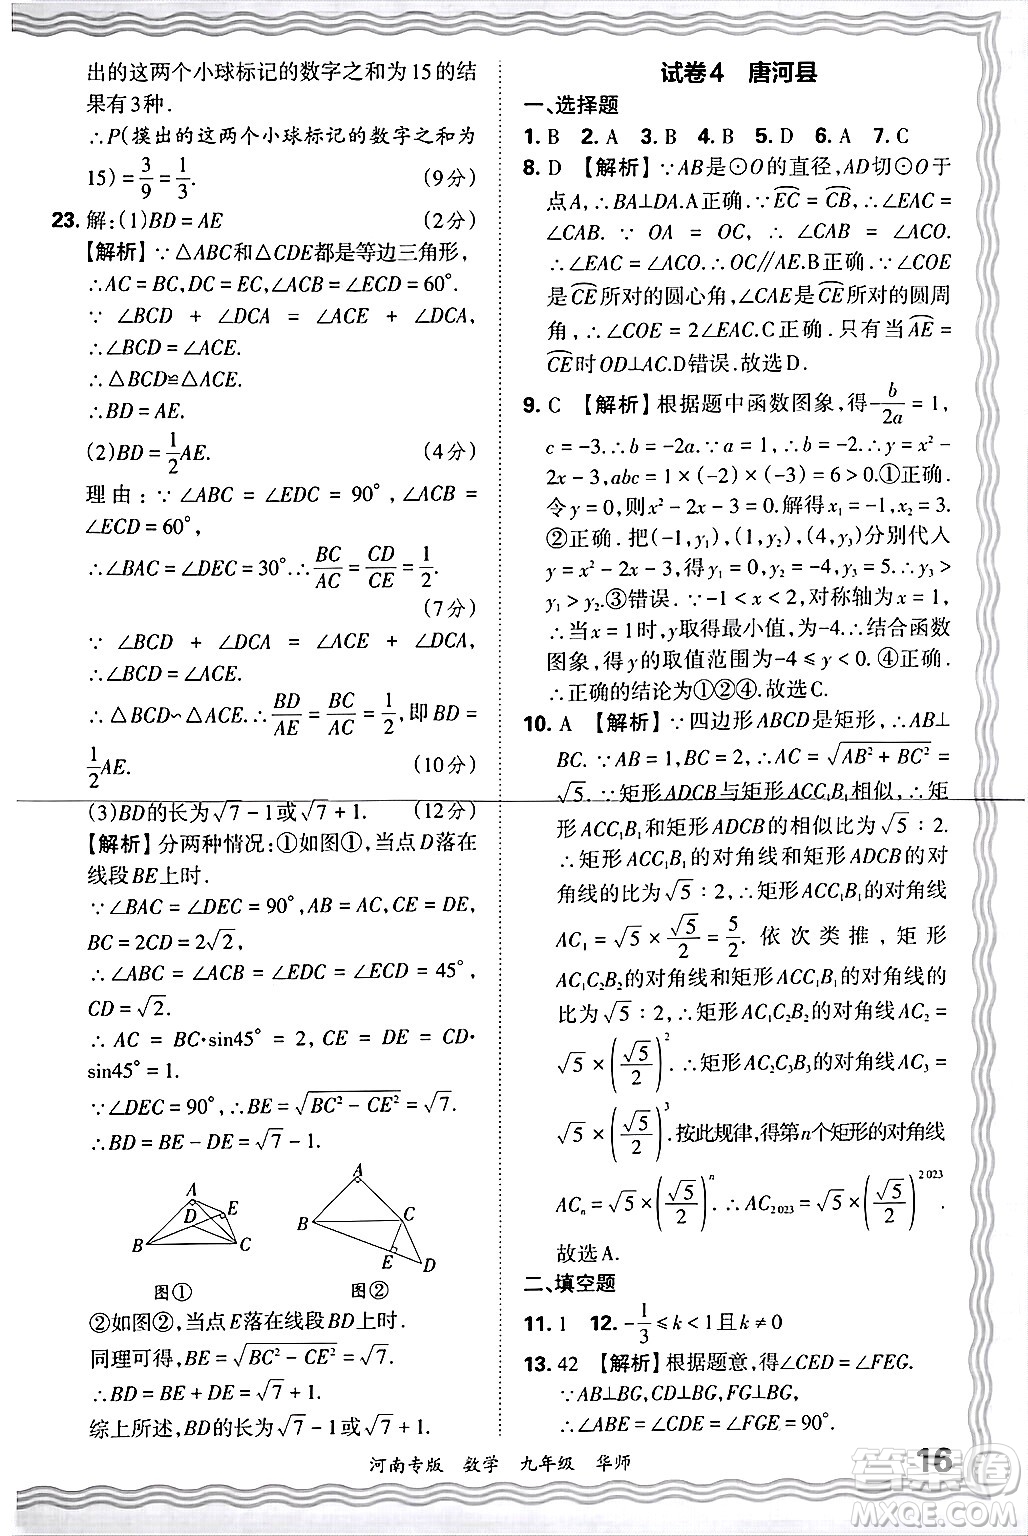 出的这两个小球标记的数字之和为15的结
果有3种.
∴P(摸出的这两个小球标记的数字之和为
15)=3/9=1/3. (9分)
23. 解:(1)BD=AE (2分)
【解析】∵△ABC和△CDE都是等边三角形,
∴AC=BC,DC=EC,∠ACB=∠ECD=60°.
∵ ∠BCD + ∠DCA = ∠ACE + ∠DCA,
∴∠BCD=∠ACE.
∴△BCD≌△ACE.
∴BD=AE.
(2)BD=1/2AE. (4分)
理由:∵∠ABC=∠EDC=90°,∠ACB=
∠ECD=60°,
∴∠BAC=∠DEC=30°.∴BC/AC=CD/CE=1/2.
(7分)
∵ ∠BCD + ∠DCA = ∠ACE + ∠DCA,
∴∠BCD=∠ACE.
∴△BCD∽△ACE.∴BD/AE=BC/AC=1/2,即BD=
1/2AE. (10分)
(3)BD的长为√7-1或√7+1. (12分)
【解析】分两种情况:①如图①,当点D落在
线段BE上时.
∵∠BAC=∠DEC=90°,AB=AC,CE=DE,
BC=2CD=2√2,
∴∠ABC=∠ACB=∠ECD=∠EDC=45°,
CD=√2.
∴AC=BC·sin45°=2,CE=DE=CD·
sin45°=1.
∵∠DEC=90°,∴BE=√(BC²-CE²)=√7.
∴BD=BE-DE=√7-1.
A
D
E
B
C
图①
A
B
C
E
D
图②
②如图②,当点E落在线段BD上时.
同理可得,BE=√(BC²-CE²)=√7.
∴BD=BE+DE=√7+1.
综上所述,BD的长为√7-1或√7+1.
试卷4 唐河县
一、选择题
1. B 2. A 3. B 4. B 5. D 6. A 7. C
8. D 【解析】∵AB是⊙O的直径,AD切⊙O于
点A,∴BA⊥DA.A正确.∵⌒EC=⌒CB,∴∠EAC=
∠CAB. ∵ OA = OC, ∴ ∠CAB = ∠ACO.
∴∠EAC=∠ACO.∴OC∥AE.B正确.∵∠COE
是⌒CE所对的圆心角,∠CAE是⌒CE所对的圆周
角,∴∠COE=2∠EAC.C正确.只有当⌒AE=
⌒CE时OD⊥AC.D错误.故选D.
9. C 【解析】根据题中函数图象,得-b/2a=1,
c=-3.∴b=-2a.∵a=1,∴b=-2.∴y=x²-
2x-3,abc=1×(-2)×(-3)=6>0.①正确.
令y=0,则x²-2x-3=0.解得x₁=-1,x₂=3.
②正确.把(-1,y₁),(1,y₂),(4,y₃)分别代入
y=x²-2x-3,得y₁=0,y₂=-4,y₃=5.∴y₃>
y₁>y₂.③错误.∵-1<x<2,对称轴为x=1,
∴当x=1时,y取得最小值,为-4.∴结合函数
图象,得y的取值范围为-4≤y<0.④正确.
∴正确的结论为①②④.故选C.
10. A 【解析】∵四边形ABCD是矩形,∴AB⊥
BC.∵AB=1,BC=2,∴AC=√(AB²+BC²)=
√5.∵矩形ADCB与矩形ACC₁B₁相似,∴矩
形ACC₁B₁和矩形ADCB的相似比为√5:2.
∴矩形ACC₁B₁的对角线和矩形ADCB的对
角线的比为√5:2,∴矩形ACC₁B₁的对角线
AC₁=√5×√5/2=5/2.依次类推,矩形
AC₁C₂B₂的对角线和矩形ACC₁B₁的对角线的
比为√5:2.∴矩形AC₁C₂B₂的对角线AC₂=
√5×(√5/2)².∴矩形AC₂C₃B₃的对角线AC₃=
√5×(√5/2)³.按此规律,得第n个矩形的对角线
ACₙ=√5×(√5/2)ⁿ.∴AC₂₀₂₃=√5×(√5/2)²⁰²³.
故选A.
二、填空题
11. 1 12. -1/3≤k<1且k≠0
13. 42 【解析】根据题意,得∠CED=∠FEG.
∵AB⊥BG,CD⊥BG,FG⊥BG,
∴∠ABE=∠CDE=∠FGE=90°.
河南专版 数学 九年级 华师
16
答案圈
MXQE.COM